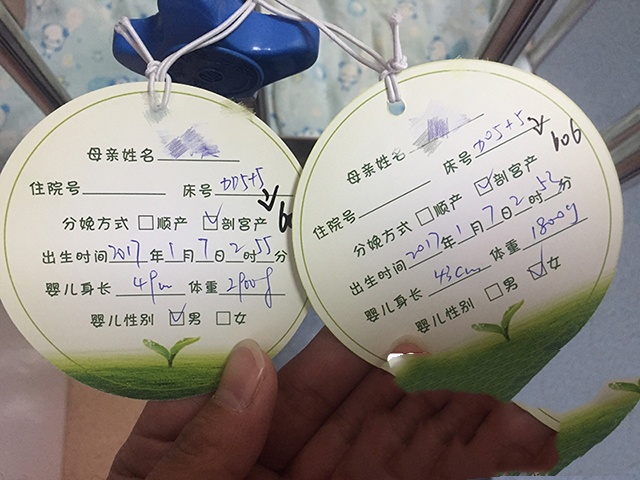 母亲姓名
住院号 床号 DD5+5
分娩方式 □顺产 ☑剖宫产
出生时间 2017 年 1 月 7 日 2 时 55 分
婴儿身长 49cm 体重 2900g
婴儿性别 ☑男 □女
母亲姓名
住院号 床号 D05+5 606
分娩方式 □顺产 ☑剖宫产
出生时间 2017 年 1 月 7 日 2 时 52 分
婴儿身长 43cm 体重 1800g
婴儿性别 □男 ☑女